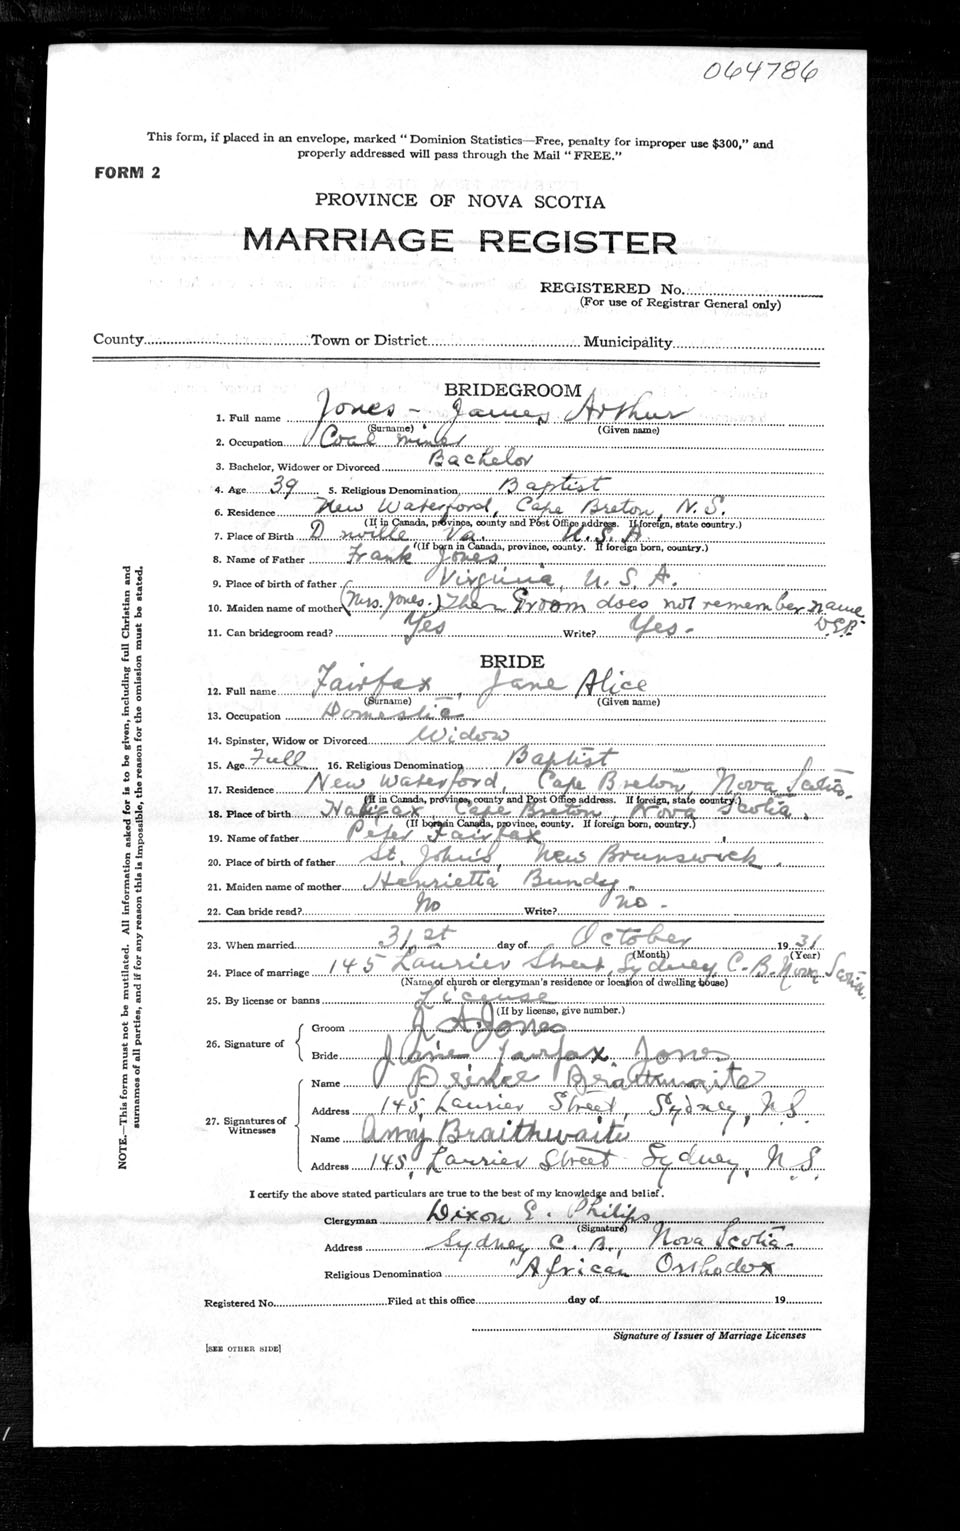 064786
This form, if placed in an envelope, marked "Dominion Statistics—Free, penalty for improper use $300," and
properly addressed will pass through the Mail "FREE."
FORM 2
PROVINCE OF NOVA SCOTIA
MARRIAGE REGISTER
REGISTERED No.
(For use of Registrar General only)
County Town or District Municipality
BRIDEGROOM
1. Full name Jones - James Arthur
(Surname) (Given name)
2. Occupation Coal miner
3. Bachelor, Widower or Divorced Bachelor
4. Age 39 5. Religious Denomination Baptist
6. Residence New Waterford, Cape Breton, N.S.
(If in Canada, province, county and Post Office address. If foreign, state country.)
7. Place of Birth D nville Va. U.S.A.
(If born in Canada, province, county. If foreign born, country.)
8. Name of Father Frank Jones
9. Place of birth of father Virginia, U.S.A.
10. Maiden name of mother (Mrs. Jones.) The Groom does not remember name.
D.E.P.
11. Can bridegroom read? Yes Write? Yes-
BRIDE
12. Full name Fairfax, Jane Alice
(Surname) (Given name)
13. Occupation Domestic
14. Spinster, Widow or Divorced Widow
15. Age Full 16. Religious Denomination Baptist
17. Residence New Waterford, Cape Breton, Nova Scotia.
(If in Canada, province, county and Post Office address. If foreign, state country.)
18. Place of birth Halifax Cape Breton Nova Scotia.
(If born in Canada, province, county. If foreign born, country.)
19. Name of father Peter Fairfax
20. Place of birth of father St. John's, New Brunswick.
21. Maiden name of mother Henrietta Bundy
22. Can bride read? No Write? no.
23. When married 31st day of October 19 31
(Month) (Year)
24. Place of marriage 145 Laurier Street, Sydney, C.B. Nova Scotia.
(Name of church or clergyman's residence or location of dwelling house)
25. By license or banns License
(If by license, give number.)
26. Signature of
Groom J A Jones
Bride Jane Fairfax Jones
27. Signatures of Witnesses
Name Braithwaite
Address 145, Laurier Street, Sydney, N.S.
Name Amy Braithwaite
Address 145, Laurier Street Sydney, N.S.
I certify the above stated particulars are true to the best of my knowledge and belief.
Clergyman Dixon E. Philips
(Signature)
Address Sydney C.B., Nova Scotia-
Religious Denomination African Orthodox
Registered No. Filed at this office day of 19
Signature of Issuer of Marriage Licenses
[SEE OTHER SIDE]
NOTE.—This form must not be mutilated. All information asked for is to be given, including full Christian and
surnames of all parties, and if for any reason this is impossible, the reason for the omission must be stated.